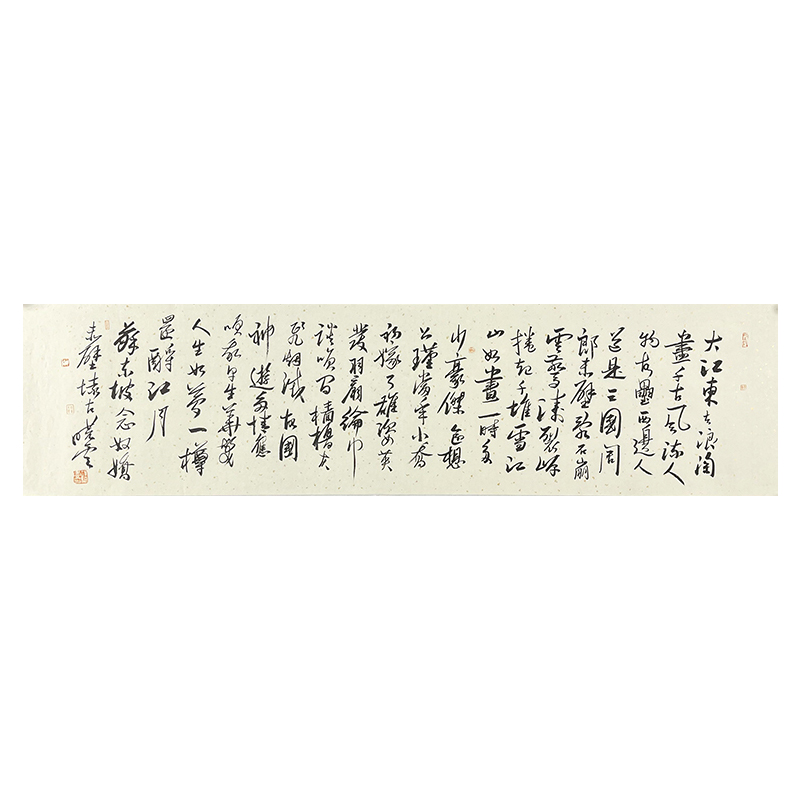 大江東去浪淘
盡千古風流人
物故壘西邊人
道是三國周
郎赤壁亂石崩
雲驚濤裂岸
捲起千堆雪江
山如畫一時多
少豪傑遙想
公瑾當年小喬
初嫁了雄姿英
發羽扇綸巾
談咲間檣櫓灰
飛烟滅故國
神遊多情應
咲我早生華髮
人生如夢一樽
還酹江月
蘇東坡念奴嬌
赤壁懷古曉雲